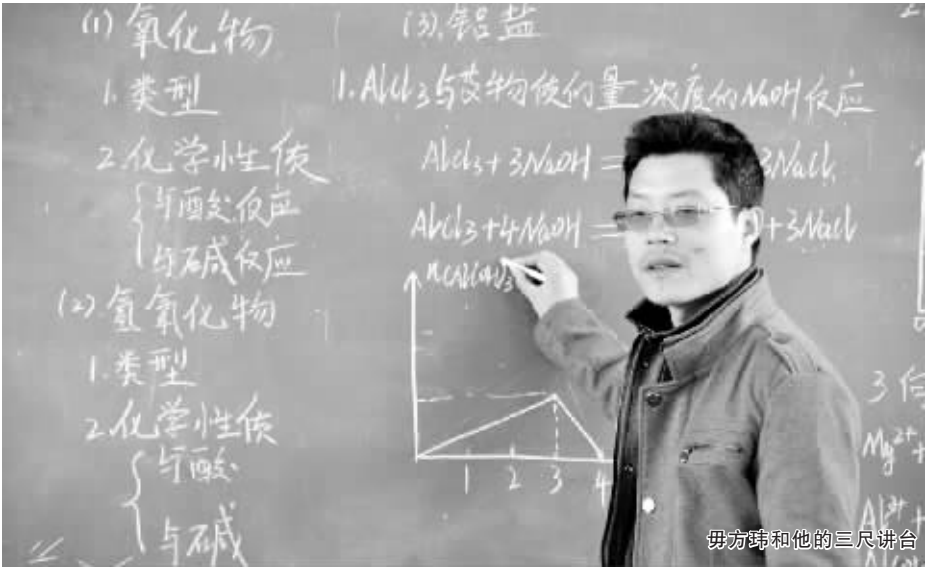 (1) 氧化物
1. 类型
2. 化学性质
与酸反应
与碱反应
(2) 氢氧化物
1. 类型
2. 化学性质
与酸
与碱
(3). 铝盐
1. AlCl3与等物质的量浓度的NaOH反应
AlCl3+3NaOH= 3NaCl
AlCl3+4NaOH= +3NaCl
n(Al(OH)3
1 2 3 4
3
Mg2+ +
Al3+ +
毋方玮和他的三尺讲台